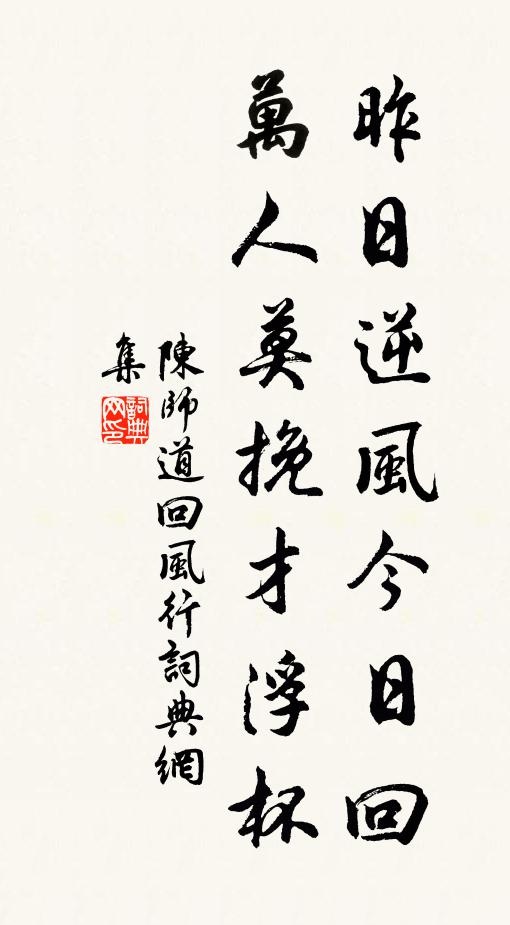 昨日逆風今日回
萬人莫挽才浮杯
陳師道回風行詞典網
集
詞典
网印